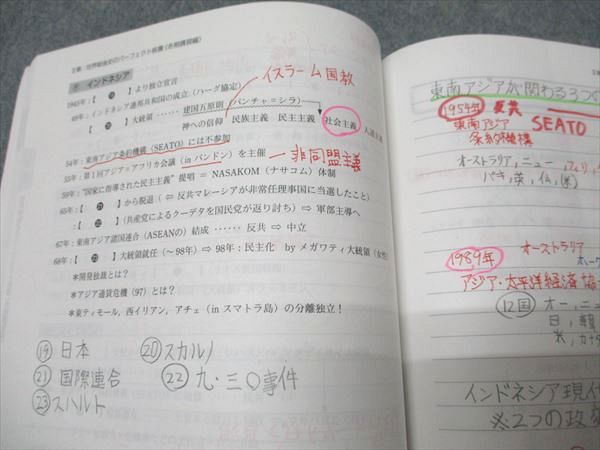 2章:世界戦後史のパーフェクト板書(冬期講習編)
インドネシア
イスラーム国教
1945年:【⑲】より独立宣言
49年:インドネシア連邦共和国の成立(ハーグ協定)
【⑳】大統領……建国五原則(パンチャ=シラ)
神への信仰 民族主義 民主主義 社会主義 人道主義
54年:東南アジア条約機構(SEATO)には不参加
55年:第1回アジア=アフリカ会議(inバンドン)を主催 — 非同盟主義
59年:"国家に指導された民主主義"提唱=NASAKOM(ナサコム)体制
65年:【㉑】から脱退(⇐反共マレーシアが非常任理事国に当選したこと)
:【㉒】(共産党によるクーデタを国民党が返り討ち)⇒軍部主導へ
67年:東南アジア諸国連合(ASEANの)結成……反共⇒中立
68年:【㉓】大統領就任(~98年)⇒98年:民主化 byメガワティ大統領(女性)
*開発独裁とは?
*アジア通貨危機(97)とは?
*東ティモール、西イリアン、アチェ(inスマトラ島)の分離独立!
⑲日本 ⑳スカルノ
㉑国際連合 ㉒九・三〇事件
㉓スハルト
東南アジアが関わる3つの
1954年 反共
東南アジア SEATO
条約機構
オーストラリア,ニュー
パキ,英,仏,米
1989年 オーストラリア
アジア・太平洋経済協
12国 オー,ニュ
日,韓
米,カナダ
インドネシア現代
※2つの政変